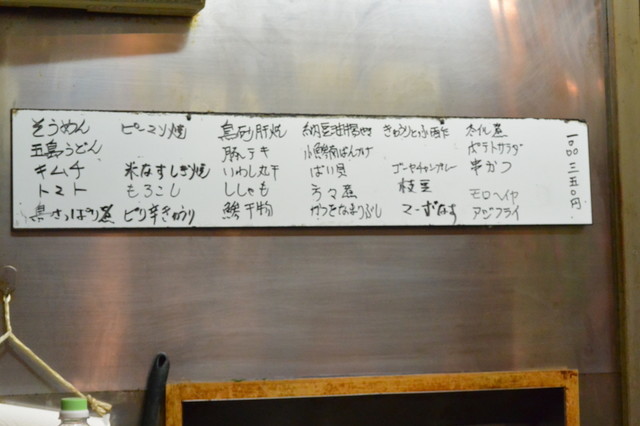 そうめん
五島うどん
キムチ
トマト
さっぱり煮
ピーマン焼
米なすしぎ焼
もろこし
ピリ辛きゅうり
砂肝焼
豚テキ
いわし丸干
ししゃも
鯵干物
納豆油揚やき
ばい貝
かつをなまりぶし
ゴーヤチャンプルー
枝豆
マーボなす
ポテトサラダ
串かつ
モロヘイヤ
アジフライ
一〇〇
三五〇円